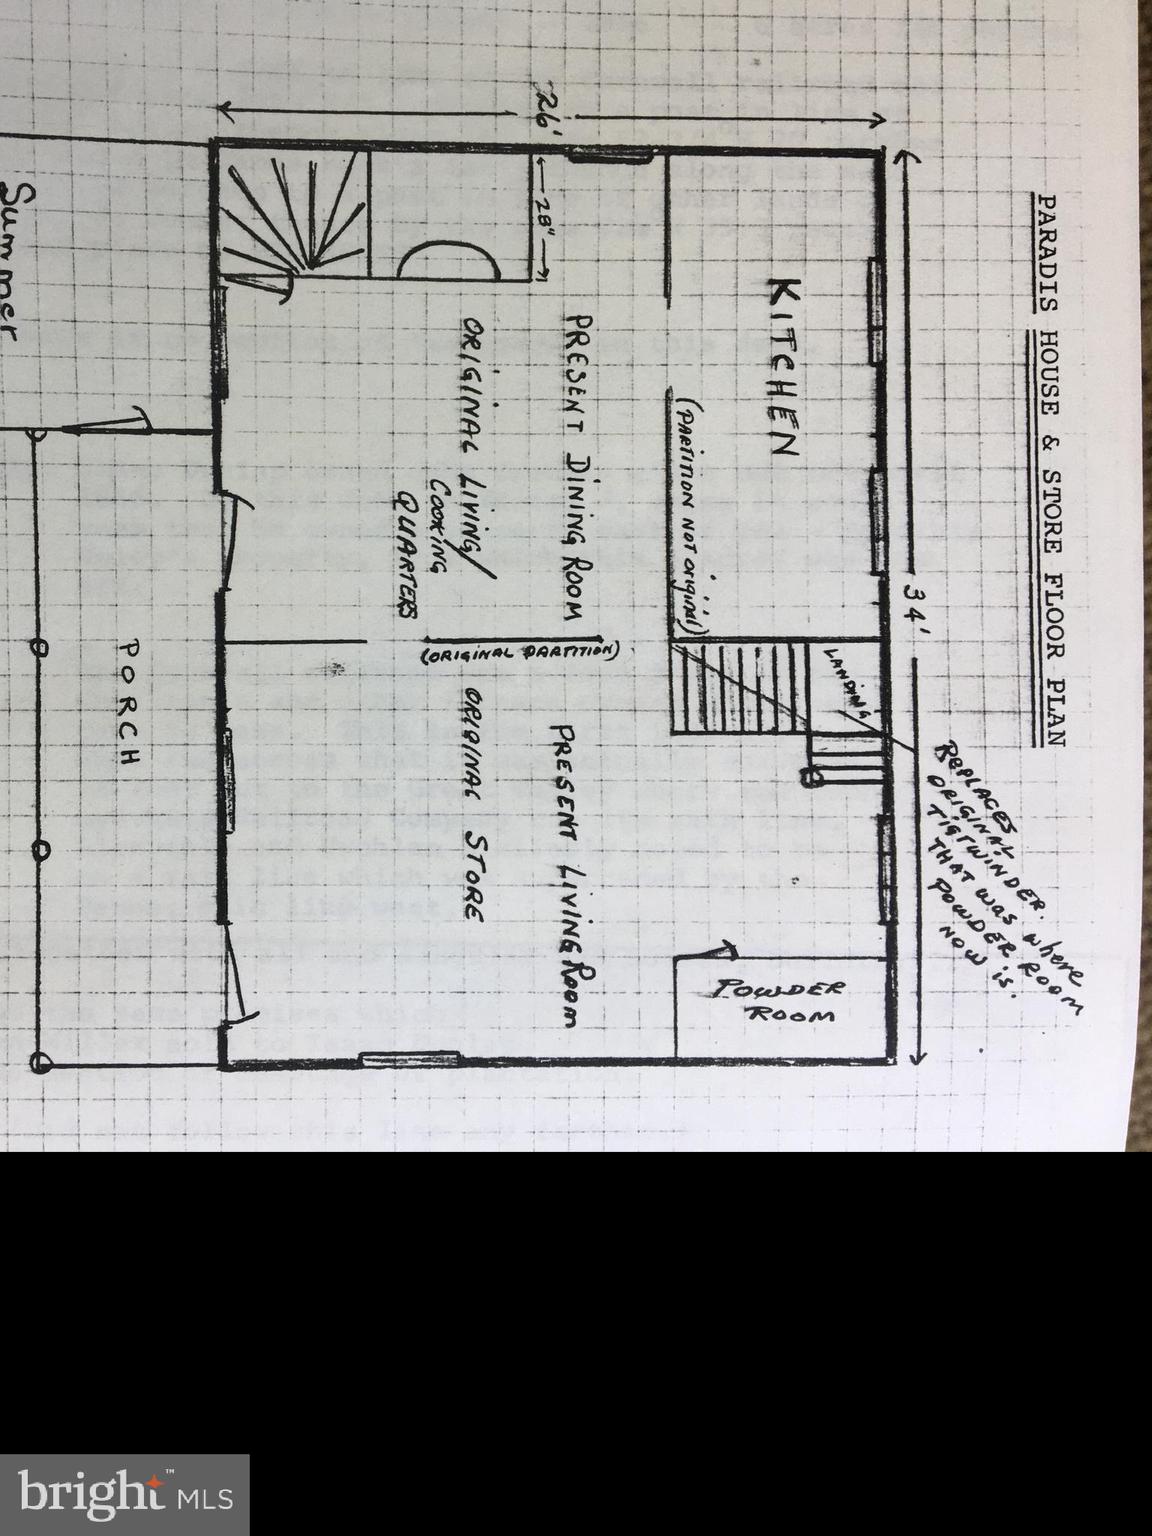 PARADIS HOUSE & STORE FLOOR PLAN
34'
REPLACES
ORIGINAL
TIGTWINDER.
THAT WAS where
POWDER ROOM
NOW is.
26'
KITCHEN
LANDING
POWDER
ROOM
(PARTITION NOT original)
28"
PRESENT DINING ROOM
ORIGINAL LIVING/
COOKING
QUARTERS
(ORIGINAL PARTITION)
PRESENT LIVING ROOM
ORIGINAL STORE
PORCH
Summer
bright™ MLS